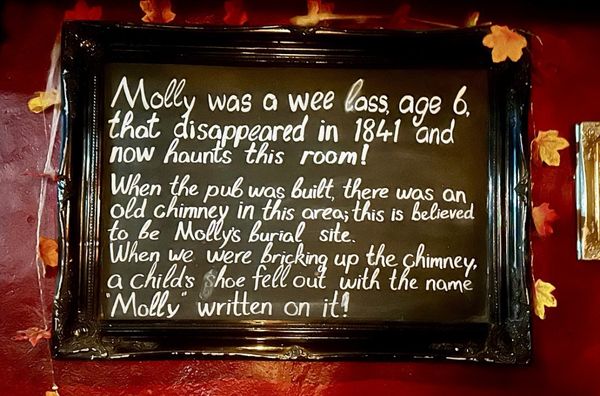 Molly was a wee lass, age 6,
that disappeared in 1841 and
now haunts this room!
When the pub was built, there was an
old chimney in this area; this is believed
to be Molly's burial site.
When we were bricking up the chimney,
a child's shoe fell out with the name
"Molly" written on it!